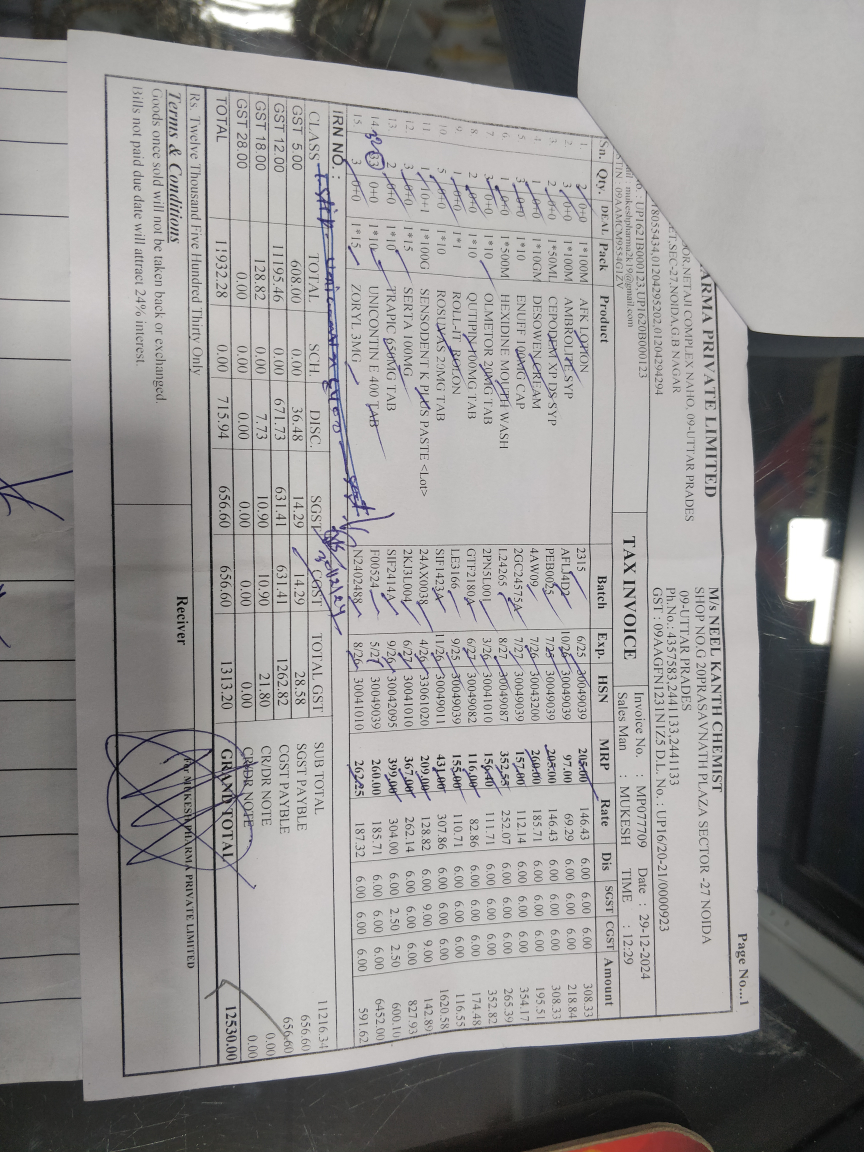 Page No...1
ARMA PRIVATE LIMITED
OOR,NETAJI COMPLEX NAHO, 09-UTTAR PRADES
ET,SEC-27,NOIDA,G.B NAGAR
18055434,01204295202,01204294294
No. : UP1621B000123,UP1620B000123
mukeshpharma2k19@gmail.com
GSTIN : 09AAMCM9554G1ZV
M/s NEEL KANTH CHEMIST
SHOP NO.G 20PRASAVNATH PLAZA SECTOR -27 NOIDA
09-UTTAR PRADES
Ph.No.: 4357583,2441133,2441133
GST : 09AAGFN1231N1Z5 D.L. No. : UP16/20-21/0000923
TAX INVOICE
Invoice No. : MP077709 Date : 29-12-2024
Sales Man : MUKESH TIME : 12:29
Sn. Qty. DEAL Pack Product Batch Exp. HSN MRP Rate Dis SGST CGST Amount
1 2 0+0 1*100M AFK LOTION 2315 6/25 30049039 205.00 146.43 6.00 6.00 6.00 308.33
2. 3 0+0 1*100M AMBROLITE SYP AFLJ4D2 10/26 30049039 97.00 69.29 6.00 6.00 6.00 218.84
3. 2 0+0 1*50ML CEPODEM XP DS SYP PEB0025 7/25 30049039 205.00 146.43 6.00 6.00 6.00 308.33
4. 1 0+0 1*10GM DESOWEN CREAM 4AW09 7/26 30043200 260.00 185.71 6.00 6.00 6.00 195.51
5. 3 0+0 1*10 ENUFF 100MG CAP 2GC24575A 7/27 30049039 157.00 112.14 6.00 6.00 6.00 354.17
6. 1 0+0 1*500M HEXIDINE MOUTH WASH L24265 8/27 30049087 352.55 252.07 6.00 6.00 6.00 265.39
7 3 0+0 1*10 OLMETOR 20MG TAB 2PN5L001 3/26 30041010 156.40 111.71 6.00 6.00 6.00 352.82
8 2 0+0 1*10 QUTIPIN 100MG TAB GTF2180A 6/27 30049082 116.00 82.86 6.00 6.00 6.00 174.48
9. 1 0+0 1*1 ROLL-IT ROLON LE3166 9/25 30049039 155.00 110.71 6.00 6.00 6.00 116.55
10 5 0+0 1*10 ROSUVAS 20MG TAB SIF1423A 11/26 30049011 431.00 307.86 6.00 6.00 6.00 1620.58
11 1 10+1 1*100G SENSODENT K PLUS PASTE <Lot> 24AX0038 4/26 33061020 209.00 128.82 6.00 9.00 9.00 142.89
12. 3 0+0 1*15 SERTA 100MG 2KJ3L004 6/27 30041010 367.00 262.14 6.00 6.00 6.00 827.93
13 2 0+0 1*10 TRAPIC 650MG TAB SIF2414A 9/26 30042095 399.00 304.00 6.00 2.50 2.50 600.10
14. 33 0+0 1*10 UNICONTIN E 400 TAB F00524 5/27 30049039 260.00 185.71 6.00 6.00 6.00 6452.00
32
15. 3 0+0 1*15 ZORYL 3MG N2402488 8/26 30041010 262.25 187.32 6.00 6.00 6.00 591.62
IRN NO. :
30/12/24
CLASS TOTAL SCH. DISC. SGST CGST TOTAL GST
GST 5.00 608.00 0.00 36.48 14.29 14.29 28.58
GST 12.00 11195.46 0.00 671.73 631.41 631.41 1262.82
GST 18.00 128.82 0.00 7.73 10.90 10.90 21.80
GST 28.00 0.00 0.00 0.00 0.00 0.00 0.00
TOTAL 11932.28 0.00 715.94 656.60 656.60 1313.20
SUB TOTAL 11216.34
SGST PAYBLE 656.60
CGST PAYBLE 656.60
CR/DR NOTE 0.00
CR/DR NOTE 0.00
GRAND TOTAL 12530.00
Rs. Twelve Thousand Five Hundred Thirty Only
Terms & Conditions
Goods once sold will not be taken back or exchanged.
Bills not paid due date will attract 24% interest.
Reciver
For MUKESH PHARMA PRIVATE LIMITED